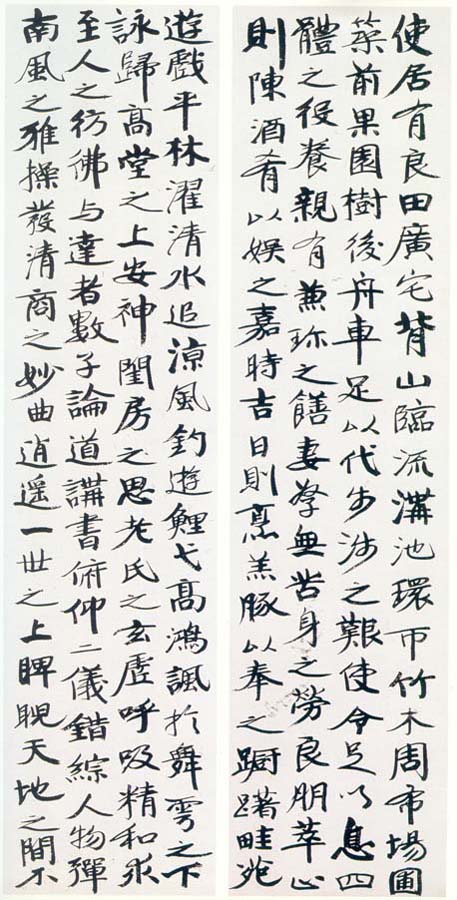 使居有良田廣宅背山臨流溝池環帀竹木周布場圃
築前果園樹後舟車足以代步涉之艱使令足以息四
體之役養親有兼珍之饍妻孥無苦身之勞良朋萃止
則陳酒肴以娛之嘉時吉日則烹羔豚以奉之蹰躇畦苑
遊戲平林濯清水追涼風釣遊鯉弋高鴻諷於舞雩之下
詠歸高堂之上安神閨房之思老氏之玄虛呼吸精和求
至人之彷彿与達者數子論道講書俯仰二儀錯綜人物彈
南風之雅操發清商之妙曲逍遥一世之上睥睨天地之間不